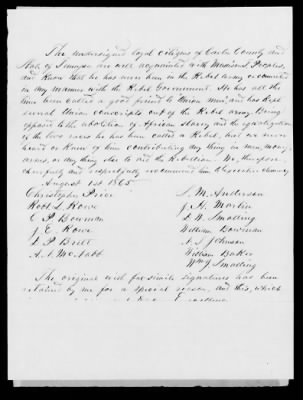 The undersigned loyal citizens of Carter County and
State of Tennessee are well acquainted with Madison T. Peoples,
and know that he has never been in the Rebel army or connected
in any manner with the Rebel Government. He has all the
time been called a good friend to Union men, and has kept
several Union conscripts out of the Rebel army. Being
opposed to the abolition of African slavery and the equalization
of the two races he has been called a Rebel, but we never
heard or knew of him contributing any thing in men, money,
arms, or any thing else to aid the Rebellion. We, therefore,
cheerfully and respectfully recommend him to executive clemency.
August 1st 1865.
Christopher Price
Robt L. Rowe
C P Bowman
J E. Rowe
L P Britt
A. N. McNabb
S. M. Anderson
J. H. Martin
D. N. Smalling
William Bowman
A. S. Johnson
William Baker
Wm J. Smalling
The original with fac-simile signatures has been
retained by me for a special reason, and this, which